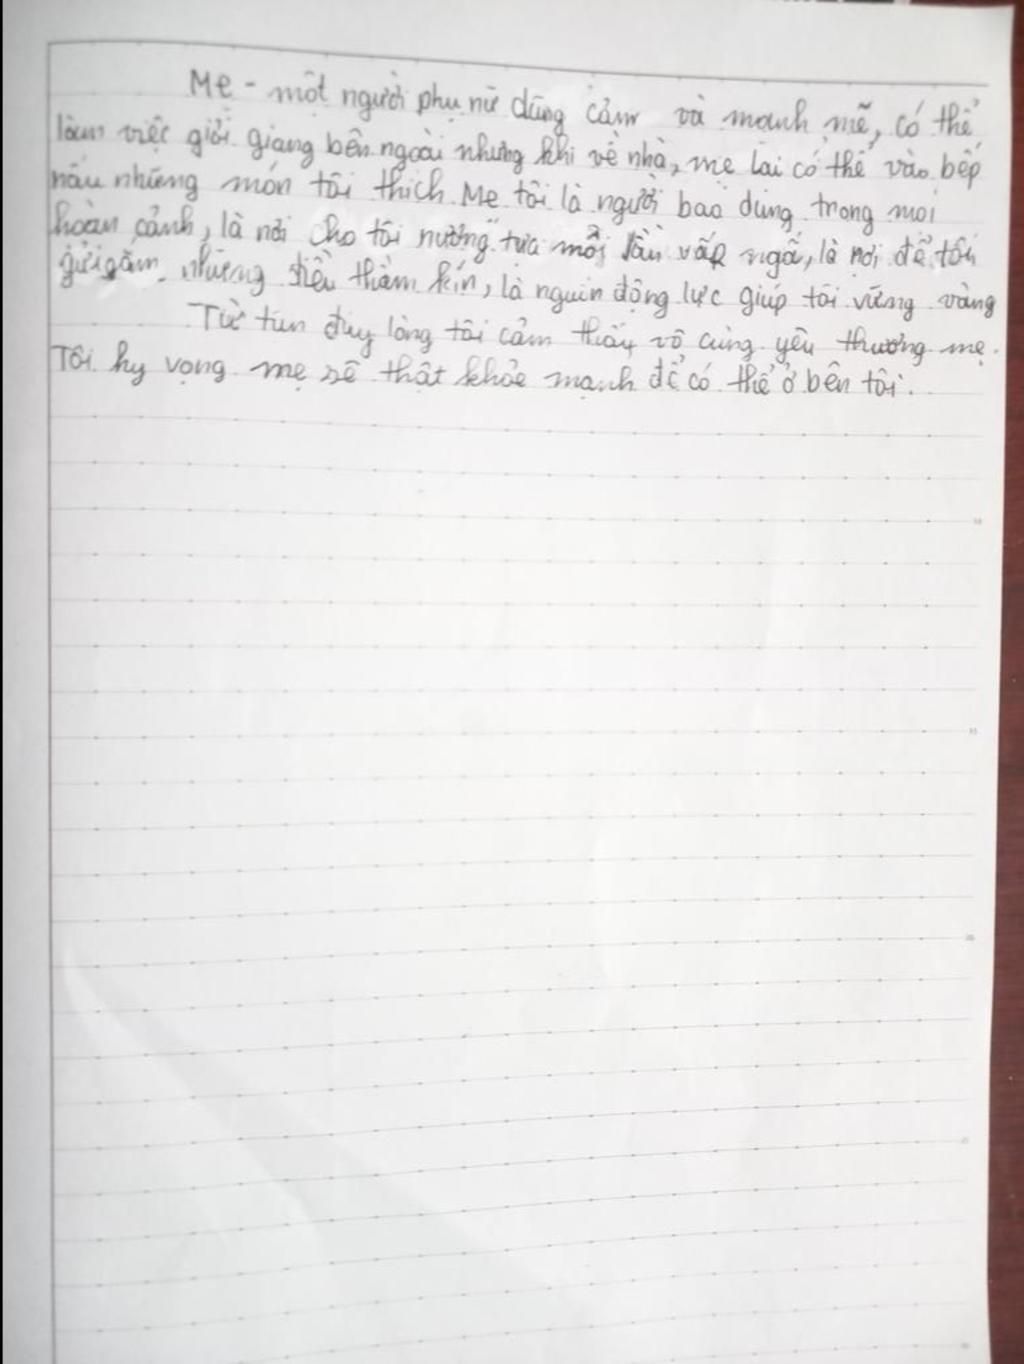 Mẹ - một người phụ nữ dũng cảm và mạnh mẽ, có thể
làm việc giỏi giang bên ngoài nhưng khi về nhà, mẹ lại có thể vào bếp
nấu những món tôi thích. Mẹ tôi là người bao dung trong mọi
hoàn cảnh, là nơi cho tôi nương tựa mỗi lần vấp ngã, là nơi để tôi
gửi gắm những điều thầm kín, là nguồn động lực giúp tôi vững vàng
Từ tun đuy lòng tôi cảm thấy vô cùng yêu thương mẹ.
Tôi hy vọng mẹ sẽ thật khỏe mạnh để có thể ở bên tôi.